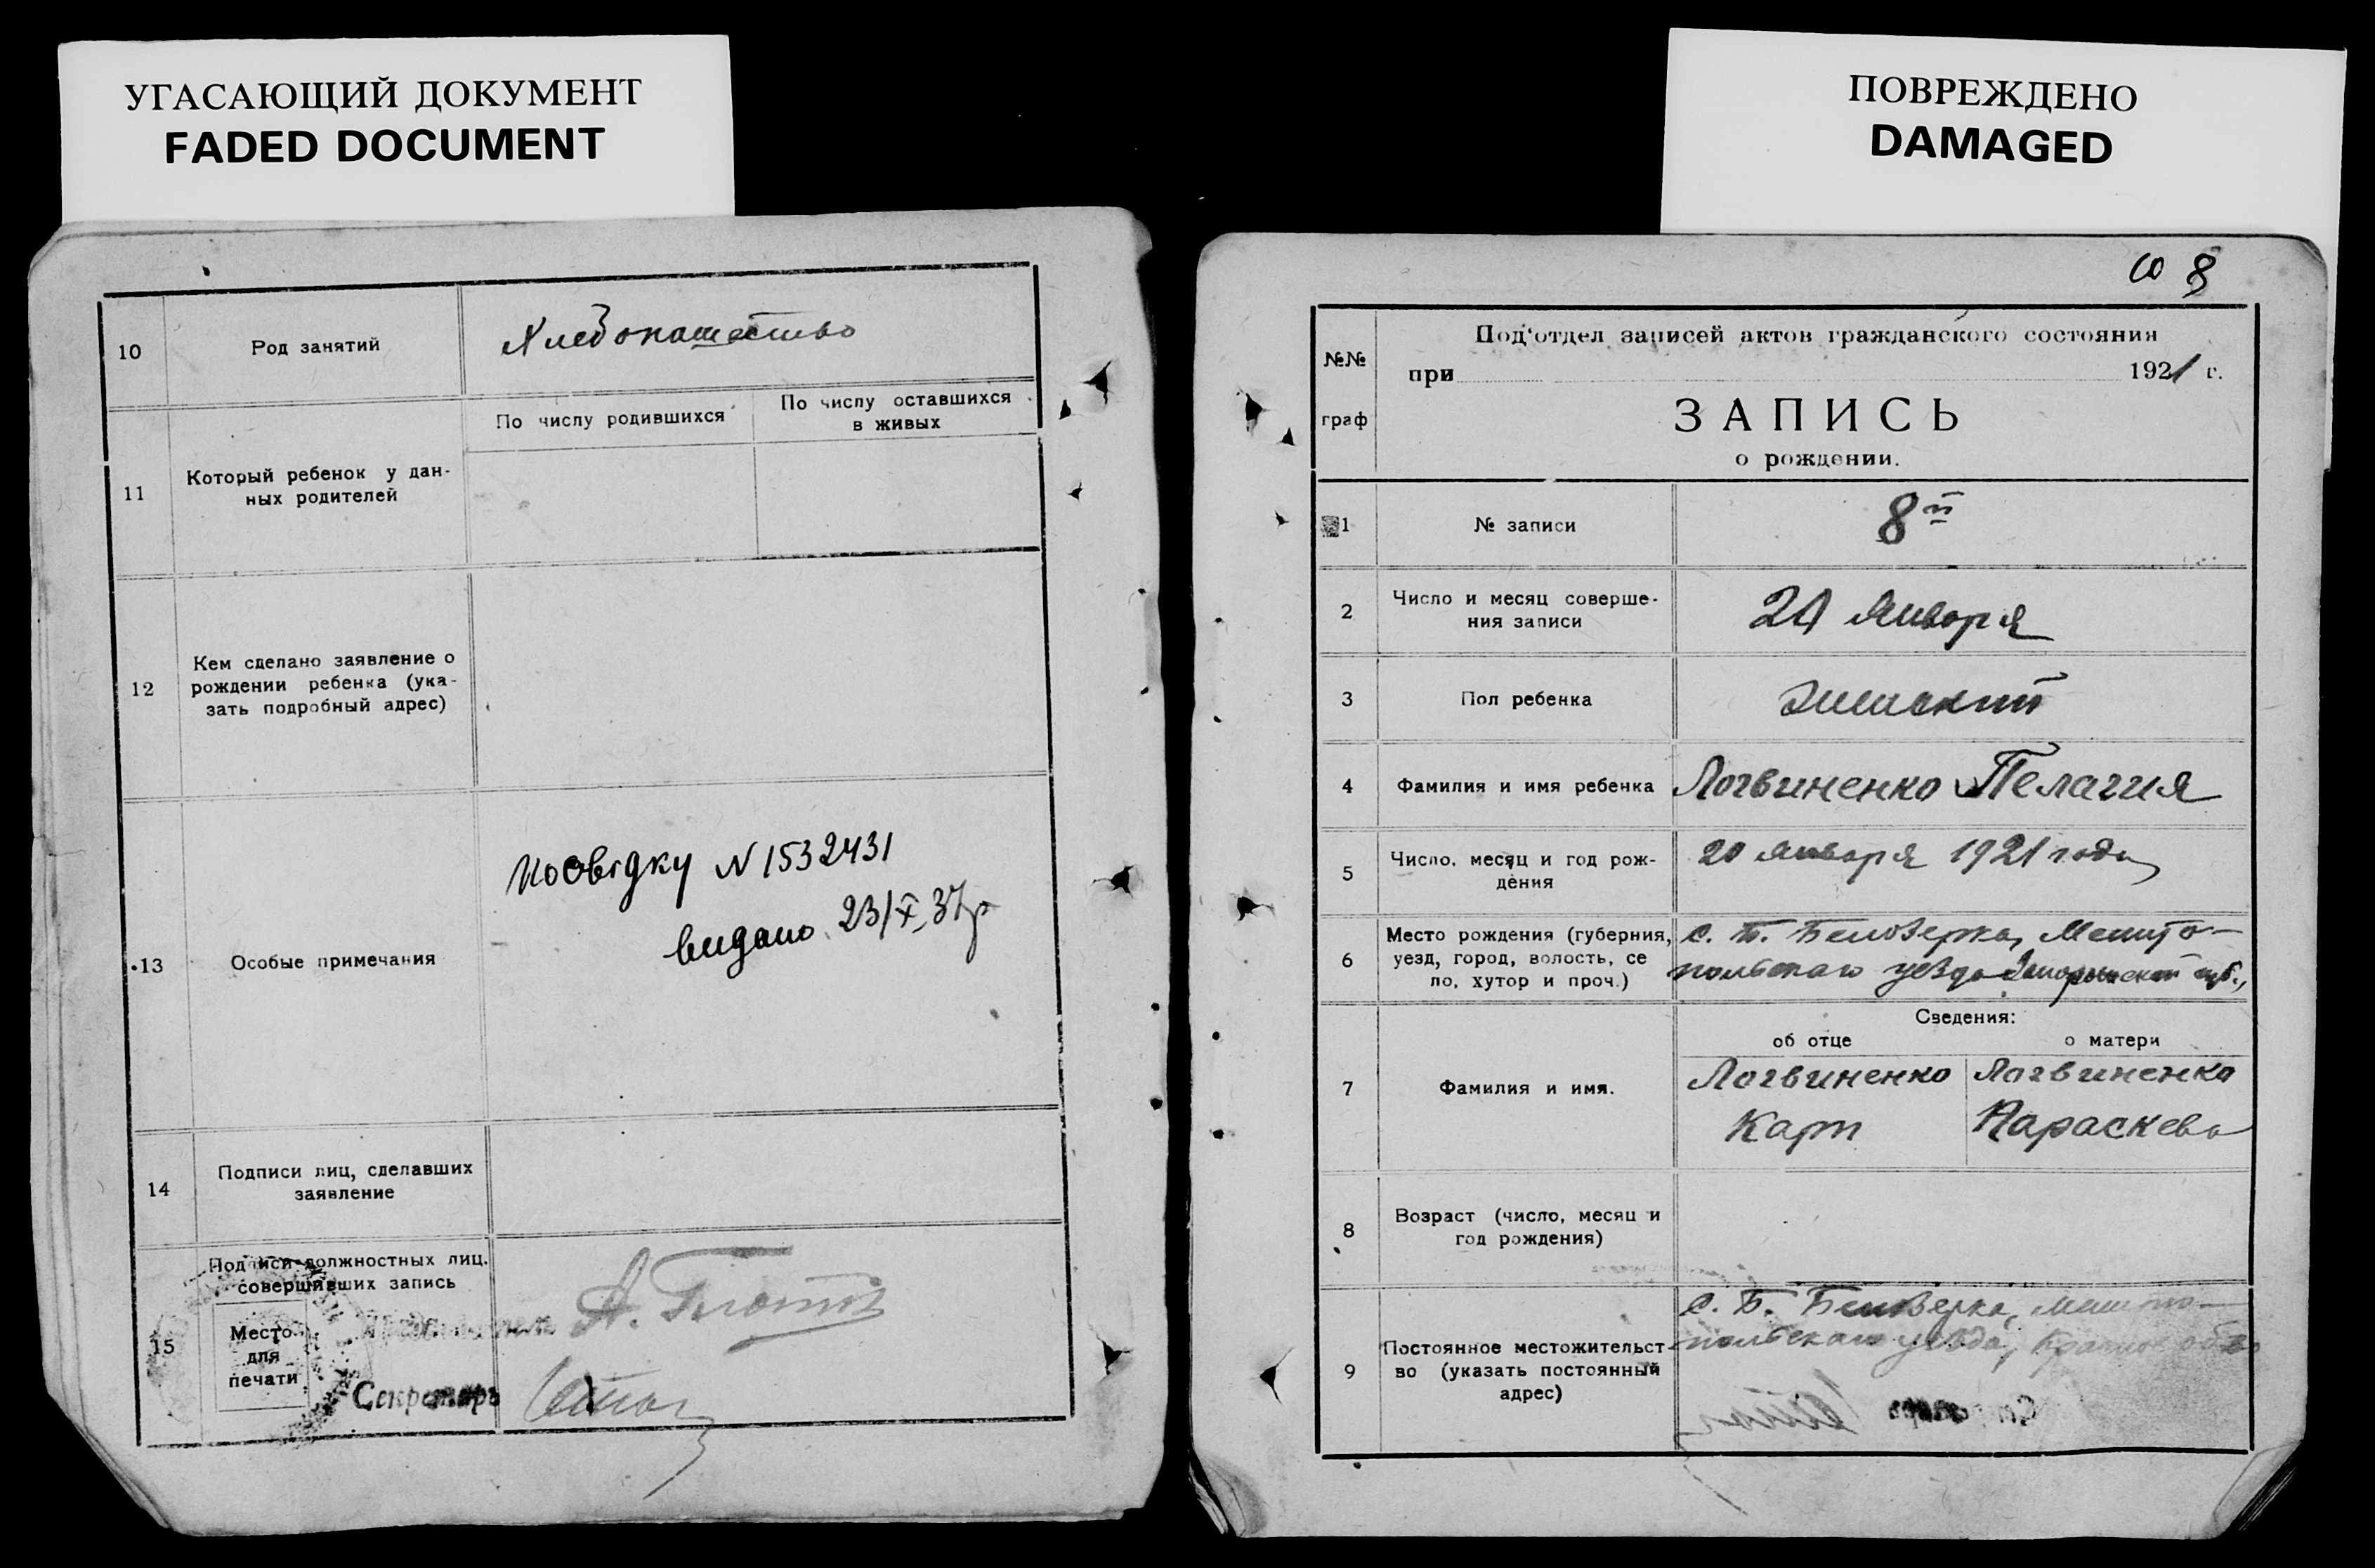 УГАСАЮЩИЙ ДОКУМЕНТ
FADED DOCUMENT
ПОВРЕЖДЕНО
DAMAGED
10
Род занятий
Хлебопашество
11
Который ребенок у дан-
ных родителей
По числу родившихся
По числу оставшихся
в живых
12
Кем сделано заявление о
рождении ребенка (ука-
зать подробный адрес)
13
Особые примечания
Посвідку N 1532431
видано 23/X 37р
14
Подписи лиц, сделавших
заявление
15
Подписи должностных лиц.
совершивших запись
Место
для
печати
А.
Секретарь
8
№№
граф
Под'отдел записей актов гражданского состояния
при 1921 г.
ЗАПИСЬ
о рождении.
1
№ записи
8й
2
Число и месяц соверше-
ния записи
21 Января
3
Пол ребенка
Женский
4
Фамилия и имя ребенка
Логвиненко Пелагия
5
Число, месяц и год рож-
дения
20 января 1921 года
6
Место рождения (губерния,
уезд, город, волость, се
ло, хутор и проч.)
с. Б. Белозерка, Мелито-
польскаго уезда губ.,
Сведения:
об отце
о матери
7
Фамилия и имя.
Логвиненко
Карп
Логвиненко
Параскева
8
Возраст (число, месяц и
год рождения)
9
Постоянное местожительст-
во (указать постоянный
адрес)
с. Б. Белозерка, Мелито-
польскаго уезда,